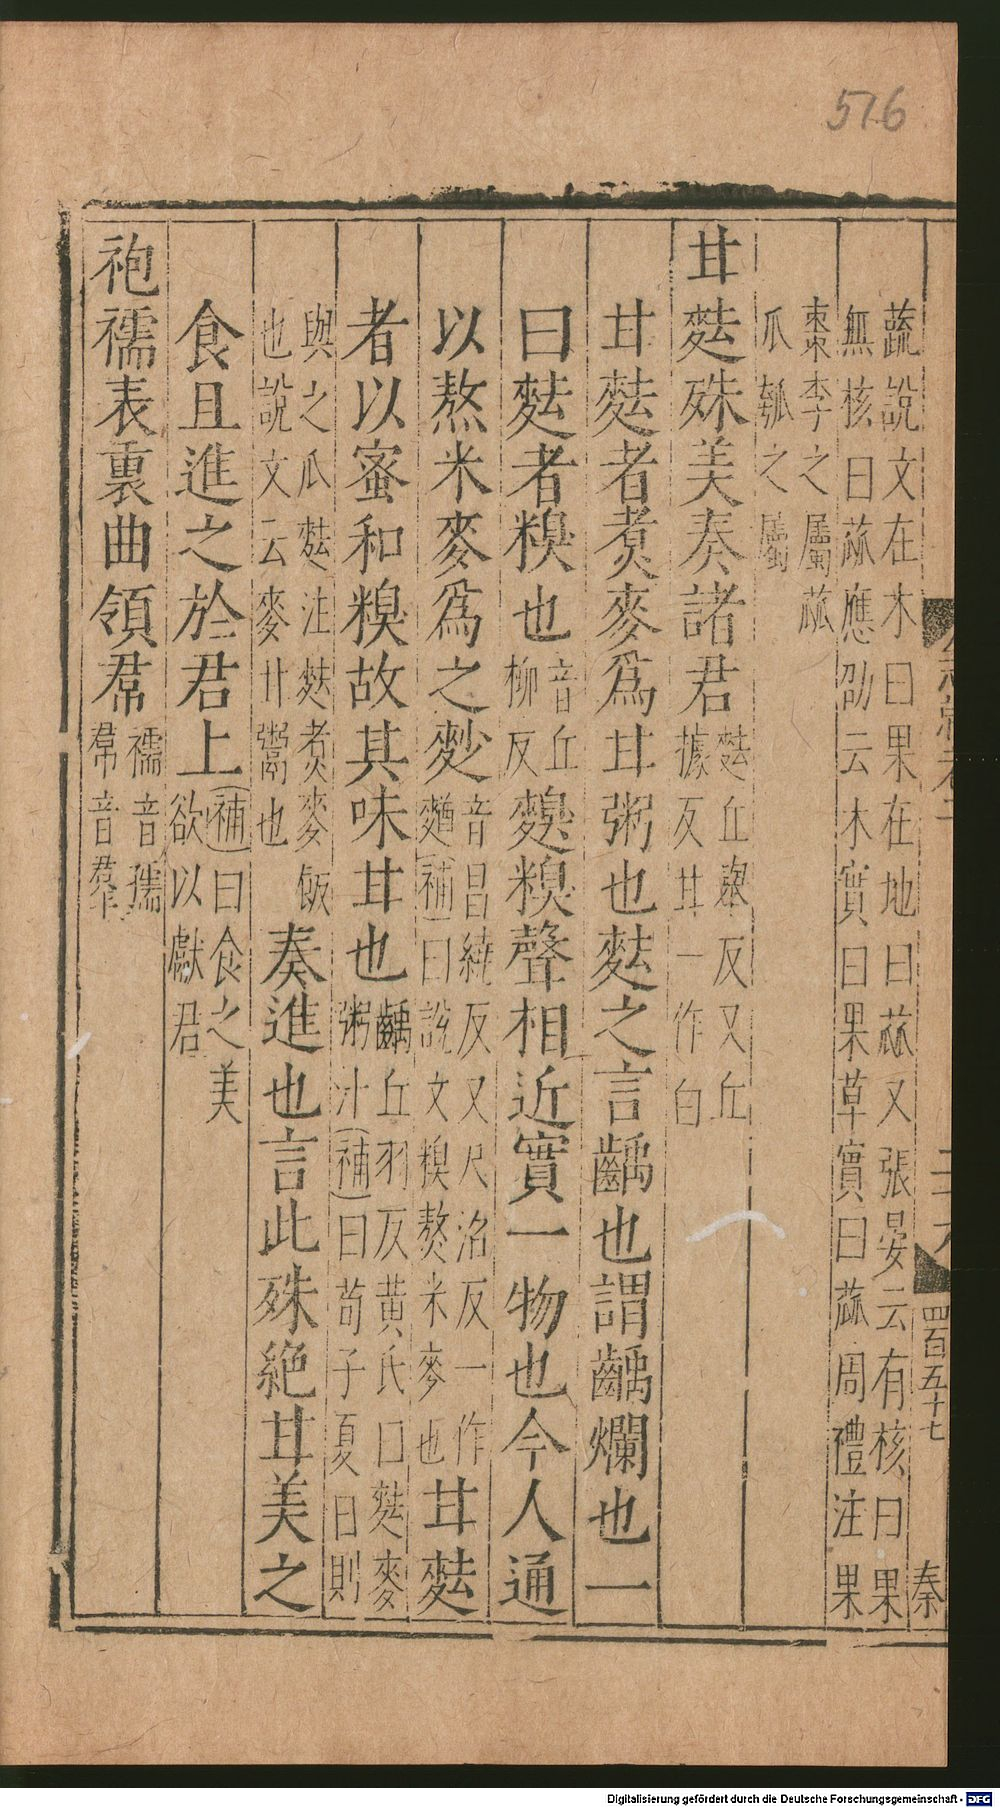 516
四百五十七
秦
蔬說文在木曰果在地曰蓏又張晏云有核曰果
無核曰蓏應劭云木實曰果草實曰蓏周禮注果
棗李之屬蓏
瓜瓠之屬
甘麮殊美奏諸君麮丘舉反又丘
據反甘一作白
甘麮者煑麥爲甘粥也麮之言齲也謂齲爛也一
曰麮者糗也音丘
柳反麹糗聲相近實一物也今人通
以熬米麥爲之麨音昌繞反又尺沼反一作
䴬(補)曰說文糗熬米麥也甘麮
者以蜜和糗故其味甘也齲丘羽反黃氏曰麮麥
粥汁(補)曰荀子夏日則
與之瓜麮注麮煑麥飯
也說文云麥甘鬻也奏進也言此殊絶甘美之
食且進之於君上(補)曰食之美
欲以獻君
袍襦表裏曲領帬襦音孺
帬音羣
Digitalisierung gefördert durch die Deutsche Forschungsgemeinschaft - DFG